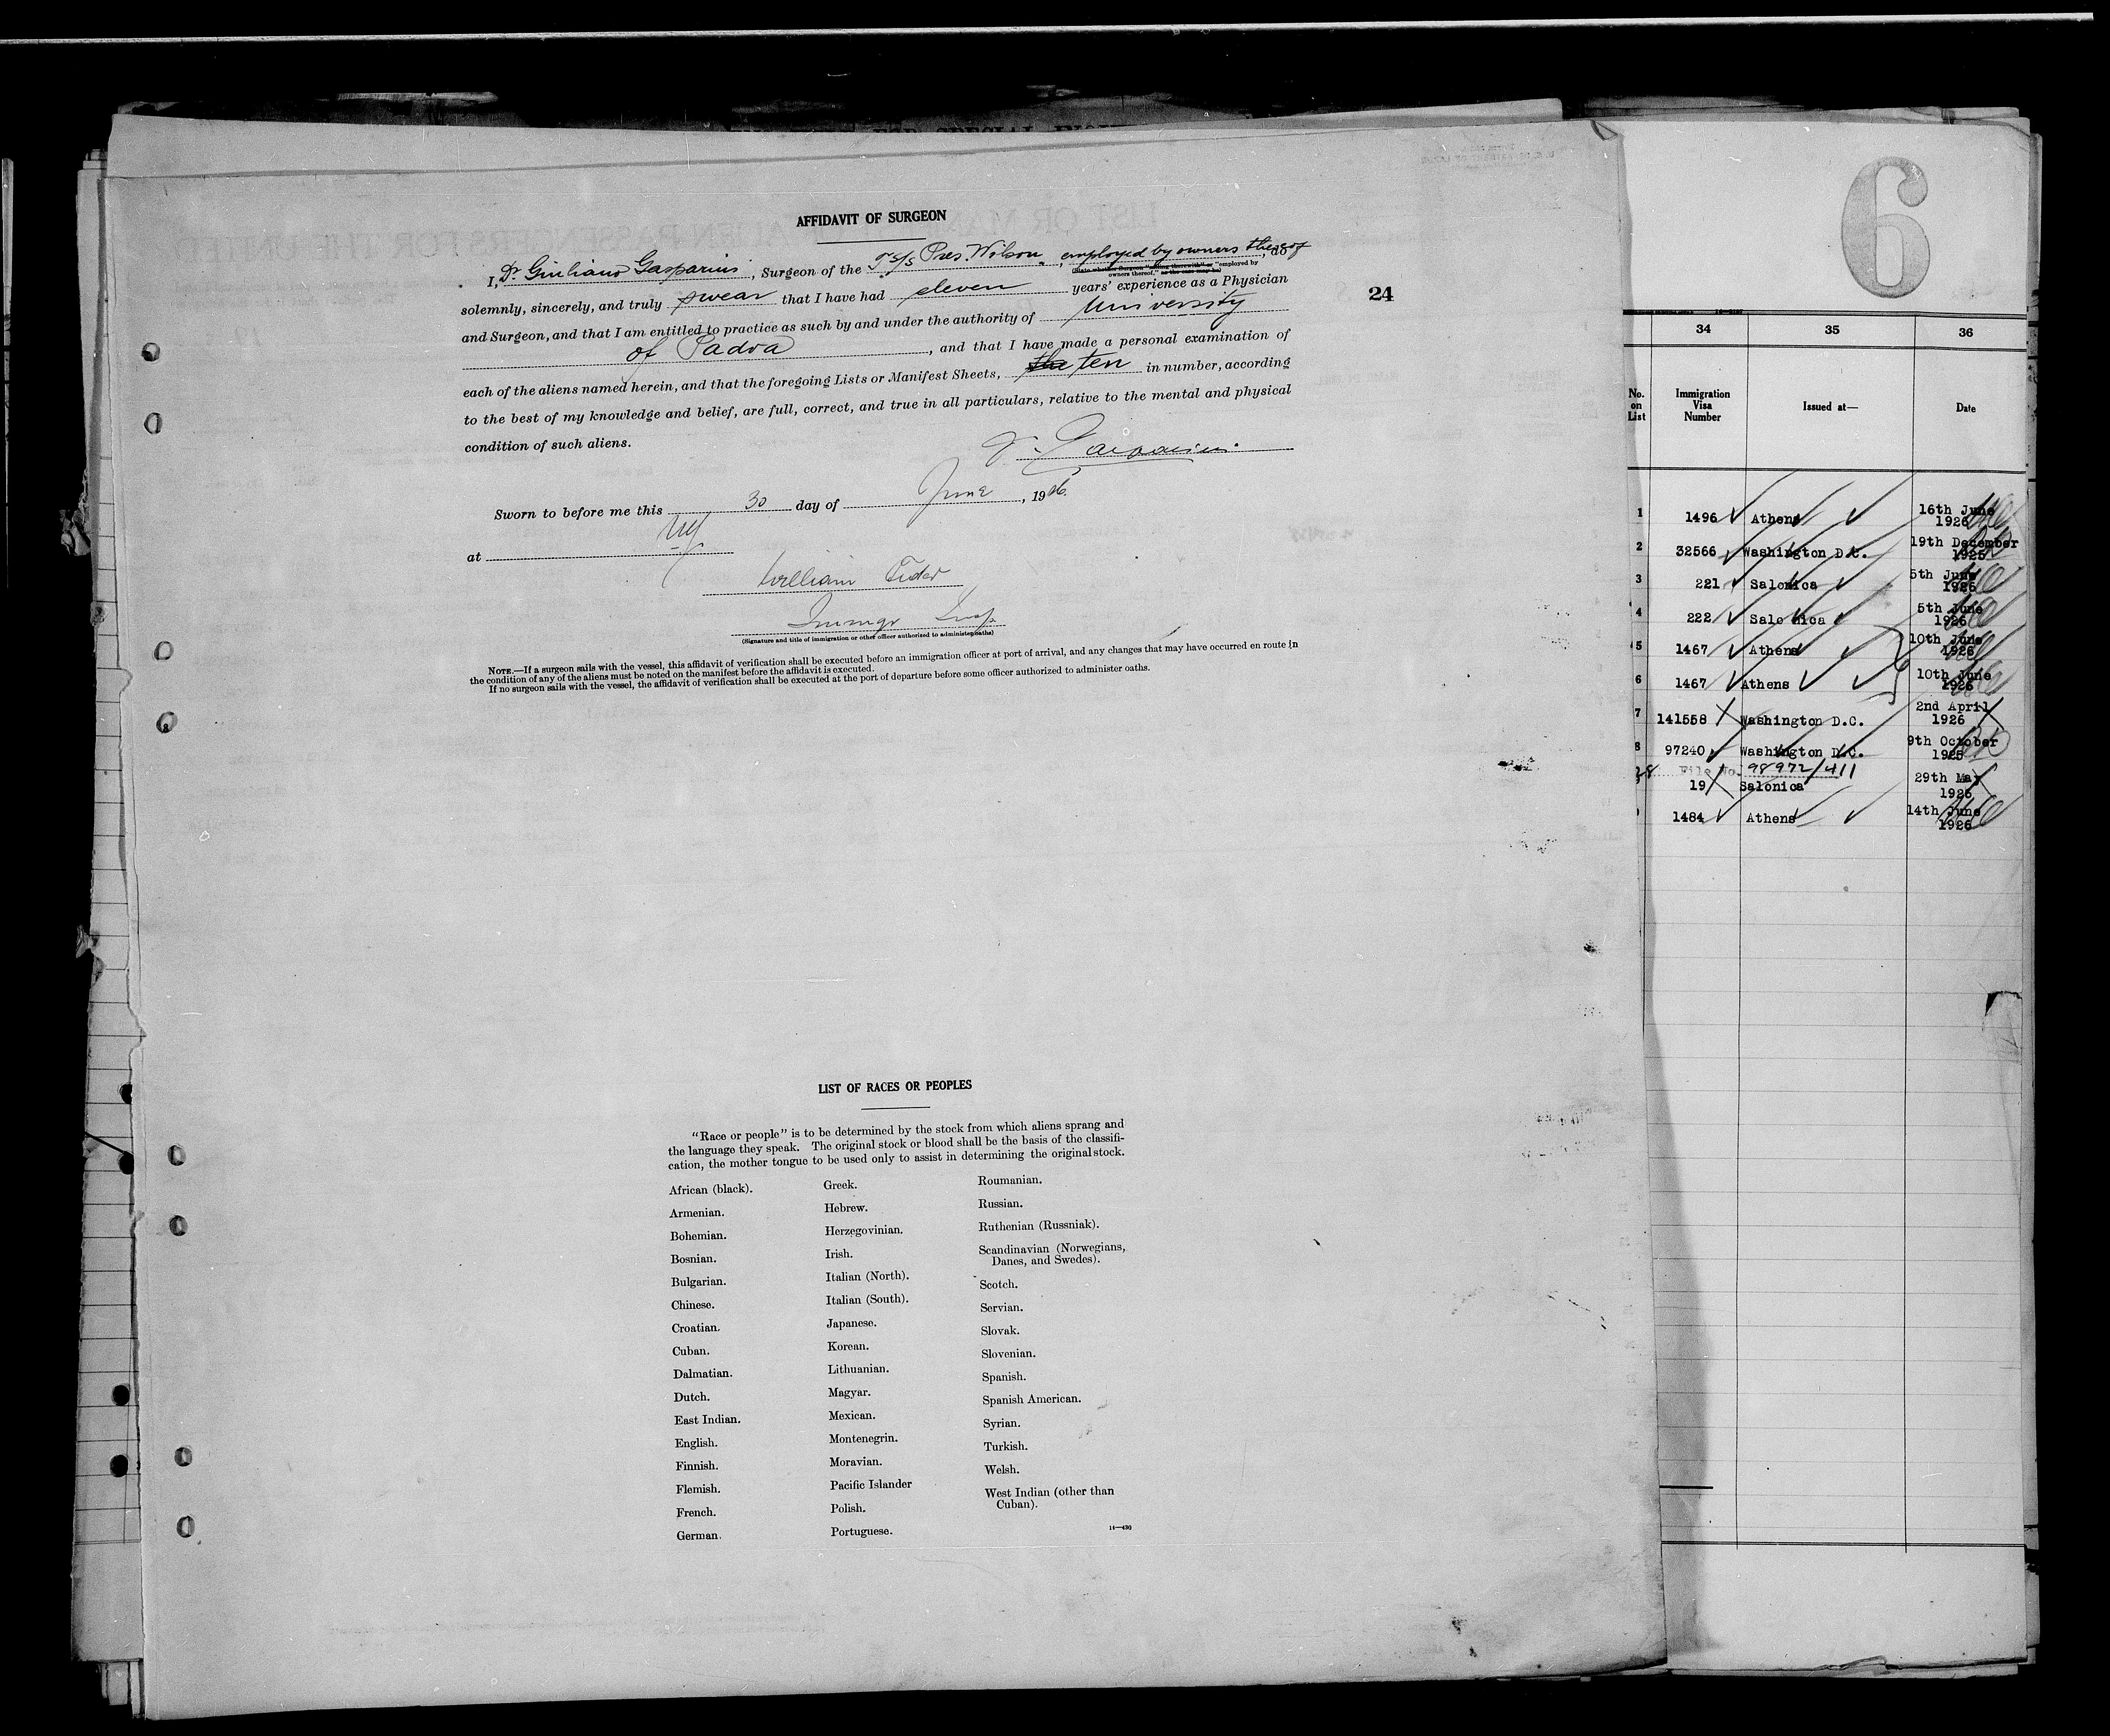 AFFIDAVIT OF SURGEON
I, Dr Giuliano Gasparini, Surgeon of the T.S/S Pres. Wilson, employed by owners thereof, do
(State whether Surgeon "sailing therewith" or "employed by
owners thereof," as the case may be)
solemnly, sincerely, and truly swear that I have had eleven years' experience as a Physician
and Surgeon, and that I am entitled to practice as such by and under the authority of University
of Padva, and that I have made a personal examination of
each of the aliens named herein, and that the foregoing Lists or Manifest Sheets, ten in number, according
to the best of my knowledge and belief, are full, correct, and true in all particulars, relative to the mental and physical
condition of such aliens.
Gasparini
Sworn to before me this 30 day of June, 1926.
at NY
William
Immigr Insp.
(Signature and title of immigration or other officer authorized to administer oaths)
NOTE.—If a surgeon sails with the vessel, this affidavit of verification shall be executed before an immigration officer at port of arrival, and any changes that may have occurred en route in
the condition of any of the aliens must be noted on the manifest before the affidavit is executed.
If no surgeon sails with the vessel, the affidavit of verification shall be executed at the port of departure before some officer authorized to administer oaths.
24
LIST OF RACES OR PEOPLES
"Race or people" is to be determined by the stock from which aliens sprang and
the language they speak. The original stock or blood shall be the basis of the classifi-
cation, the mother tongue to be used only to assist in determining the original stock.
African (black).
Armenian.
Bohemian.
Bosnian.
Bulgarian.
Chinese.
Croatian.
Cuban.
Dalmatian.
Dutch.
East Indian.
English.
Finnish.
Flemish.
French.
German.
Greek.
Hebrew.
Herzegovinian.
Irish.
Italian (North).
Italian (South).
Japanese.
Korean.
Lithuanian.
Magyar.
Mexican.
Montenegrin.
Moravian.
Pacific Islander
Polish.
Portuguese.
Roumanian.
Russian.
Ruthenian (Russniak).
Scandinavian (Norwegians,
Danes, and Swedes).
Scotch.
Servian.
Slovak.
Slovenian.
Spanish.
Spanish American.
Syrian.
Turkish.
Welsh.
West Indian (other than
Cuban).
14—430
6
34 35 36
No. on List Immigration Visa Number Issued at— Date
1 1496 Athens 16th June 1926
2 32566 Washington D.C. 19th December 1925
3 221 Salonica 5th June 1926
4 222 Salonica 5th June 1926
5 1467 Athens 10th June 1926
6 1467 Athens 10th June 1926
7 141558 Washington D.C. 2nd April 1926
8 97240 Washington D.C. 9th October 1925
File No. 98972/411
19 Salonica 29th May 1926
1484 Athens 14th June 1926